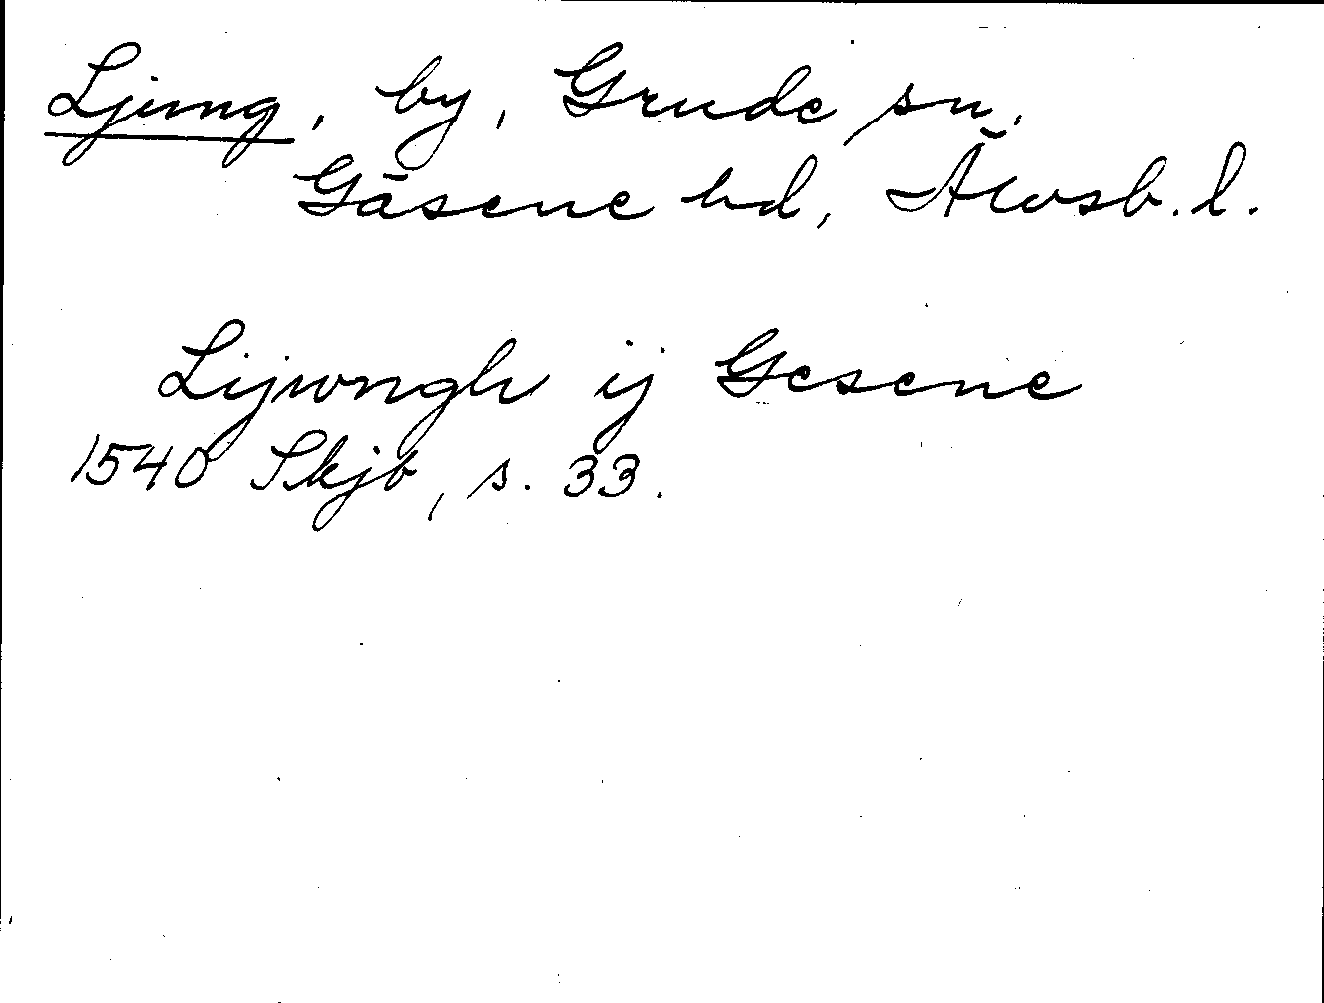 Ljung, by, Grude sn,
Gäsene hd, Älvsb. l.
Lijwngh ij Gesene
1540 Skjb, s. 33.